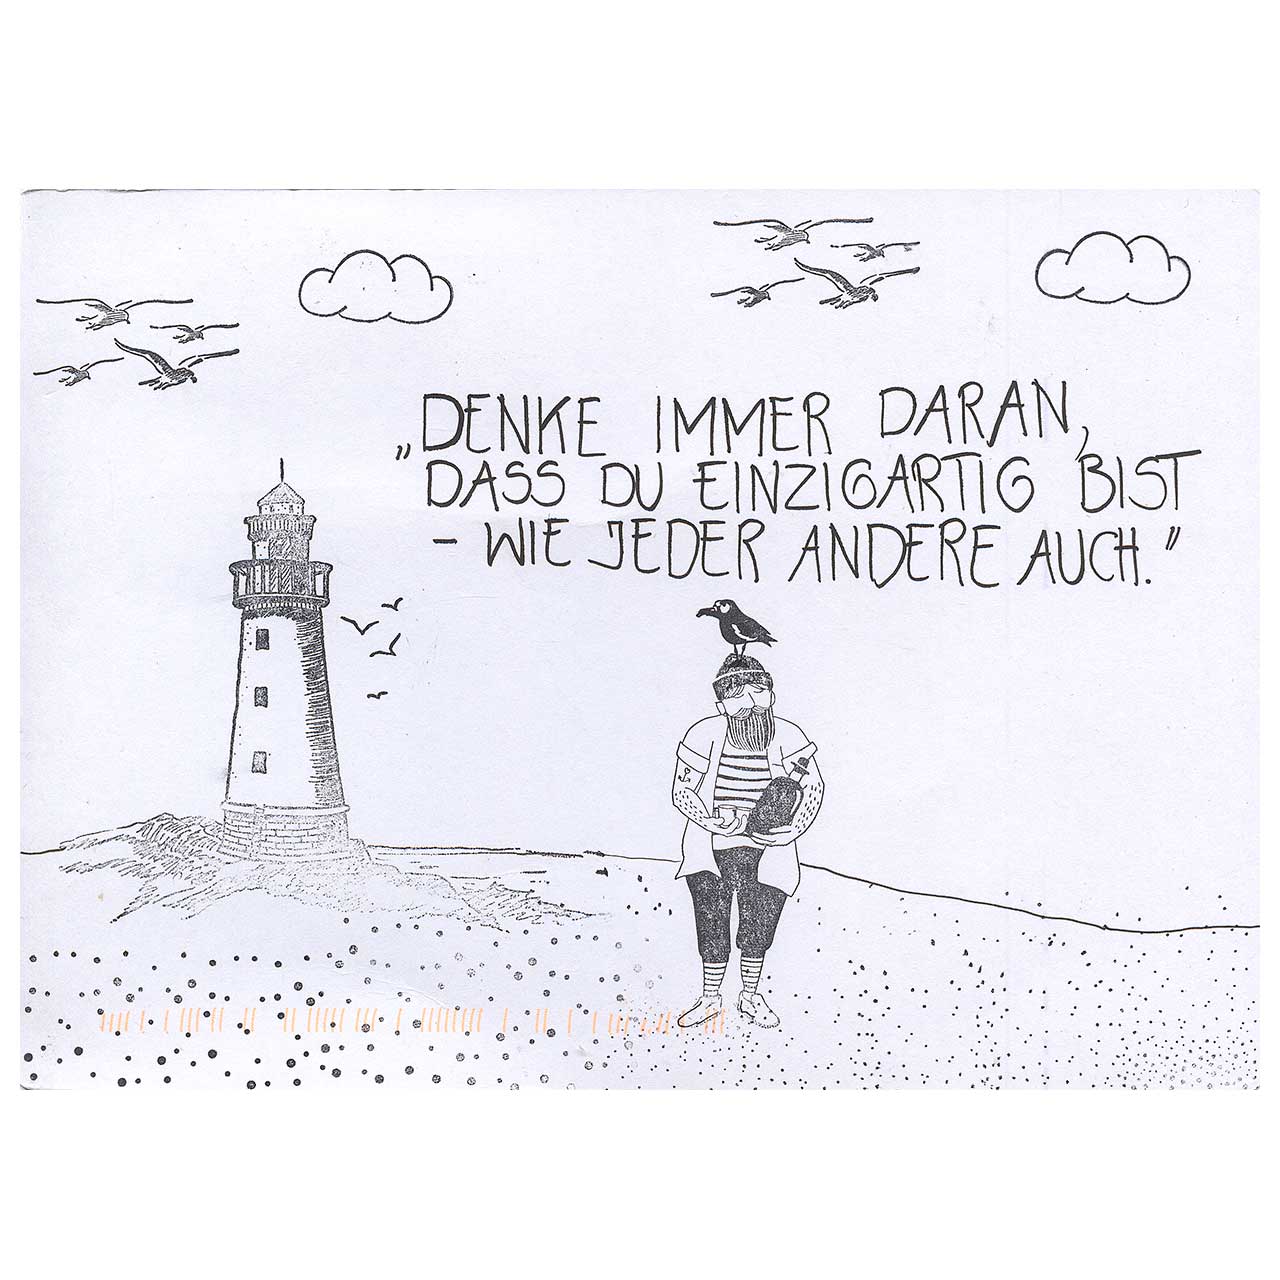 „DENKE IMMER DARAN,
DASS DU EINZIGARTIG BIST
- WIE JEDER ANDERE AUCH."